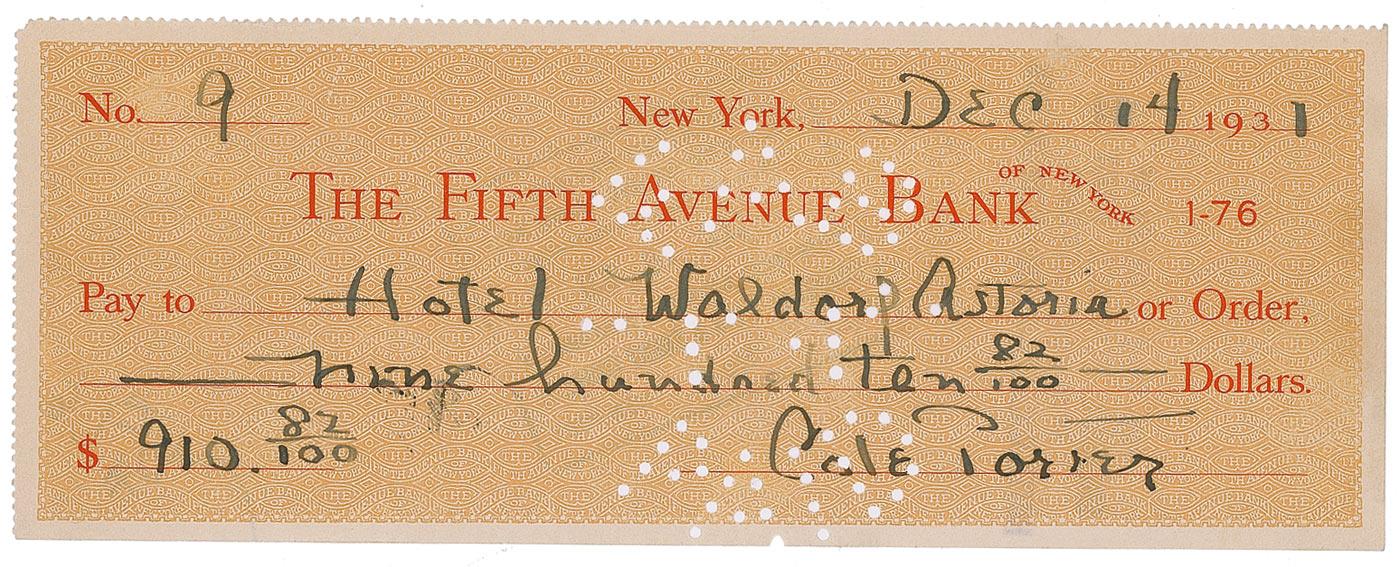 No. 9 New York, DEC 14 1931
THE FIFTH AVENUE BANK OF NEW YORK 1-76
Pay to Hotel Waldorf Astoria or Order,
Nine hundred ten 82/100 Dollars.
$ 910. 82/100 Cole Porter